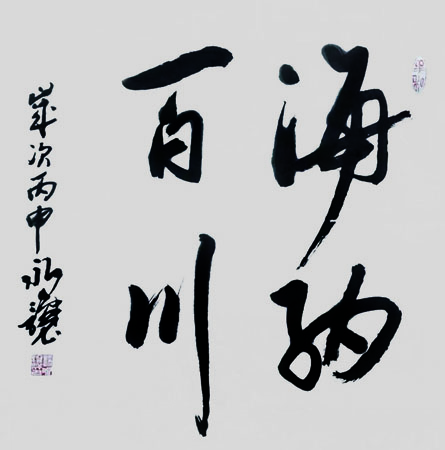 海纳
百川
歲次丙申永